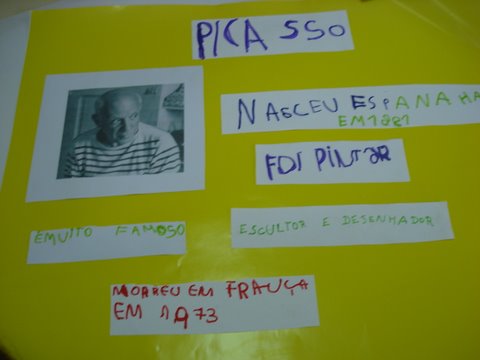 PICASSO
NASCEU ESPANAHA
EM 1881
FOI PINTAR
EMUITO FAMOSO
ESCULTOR E DESENHADOR
MORREU EM FRANÇA
EM 1973